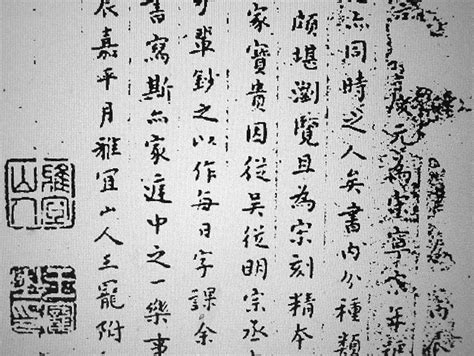 元為宋寧宗年
亦同時之人矣書內分種類
頗堪瀏覽且為宋刻精本
家寶貴因從吳從明宗丞
輩鈔之以作每日字課余
書寫斯亦家庭中之一樂事
辰嘉平月雅宜山人王寵附
雅宜山人